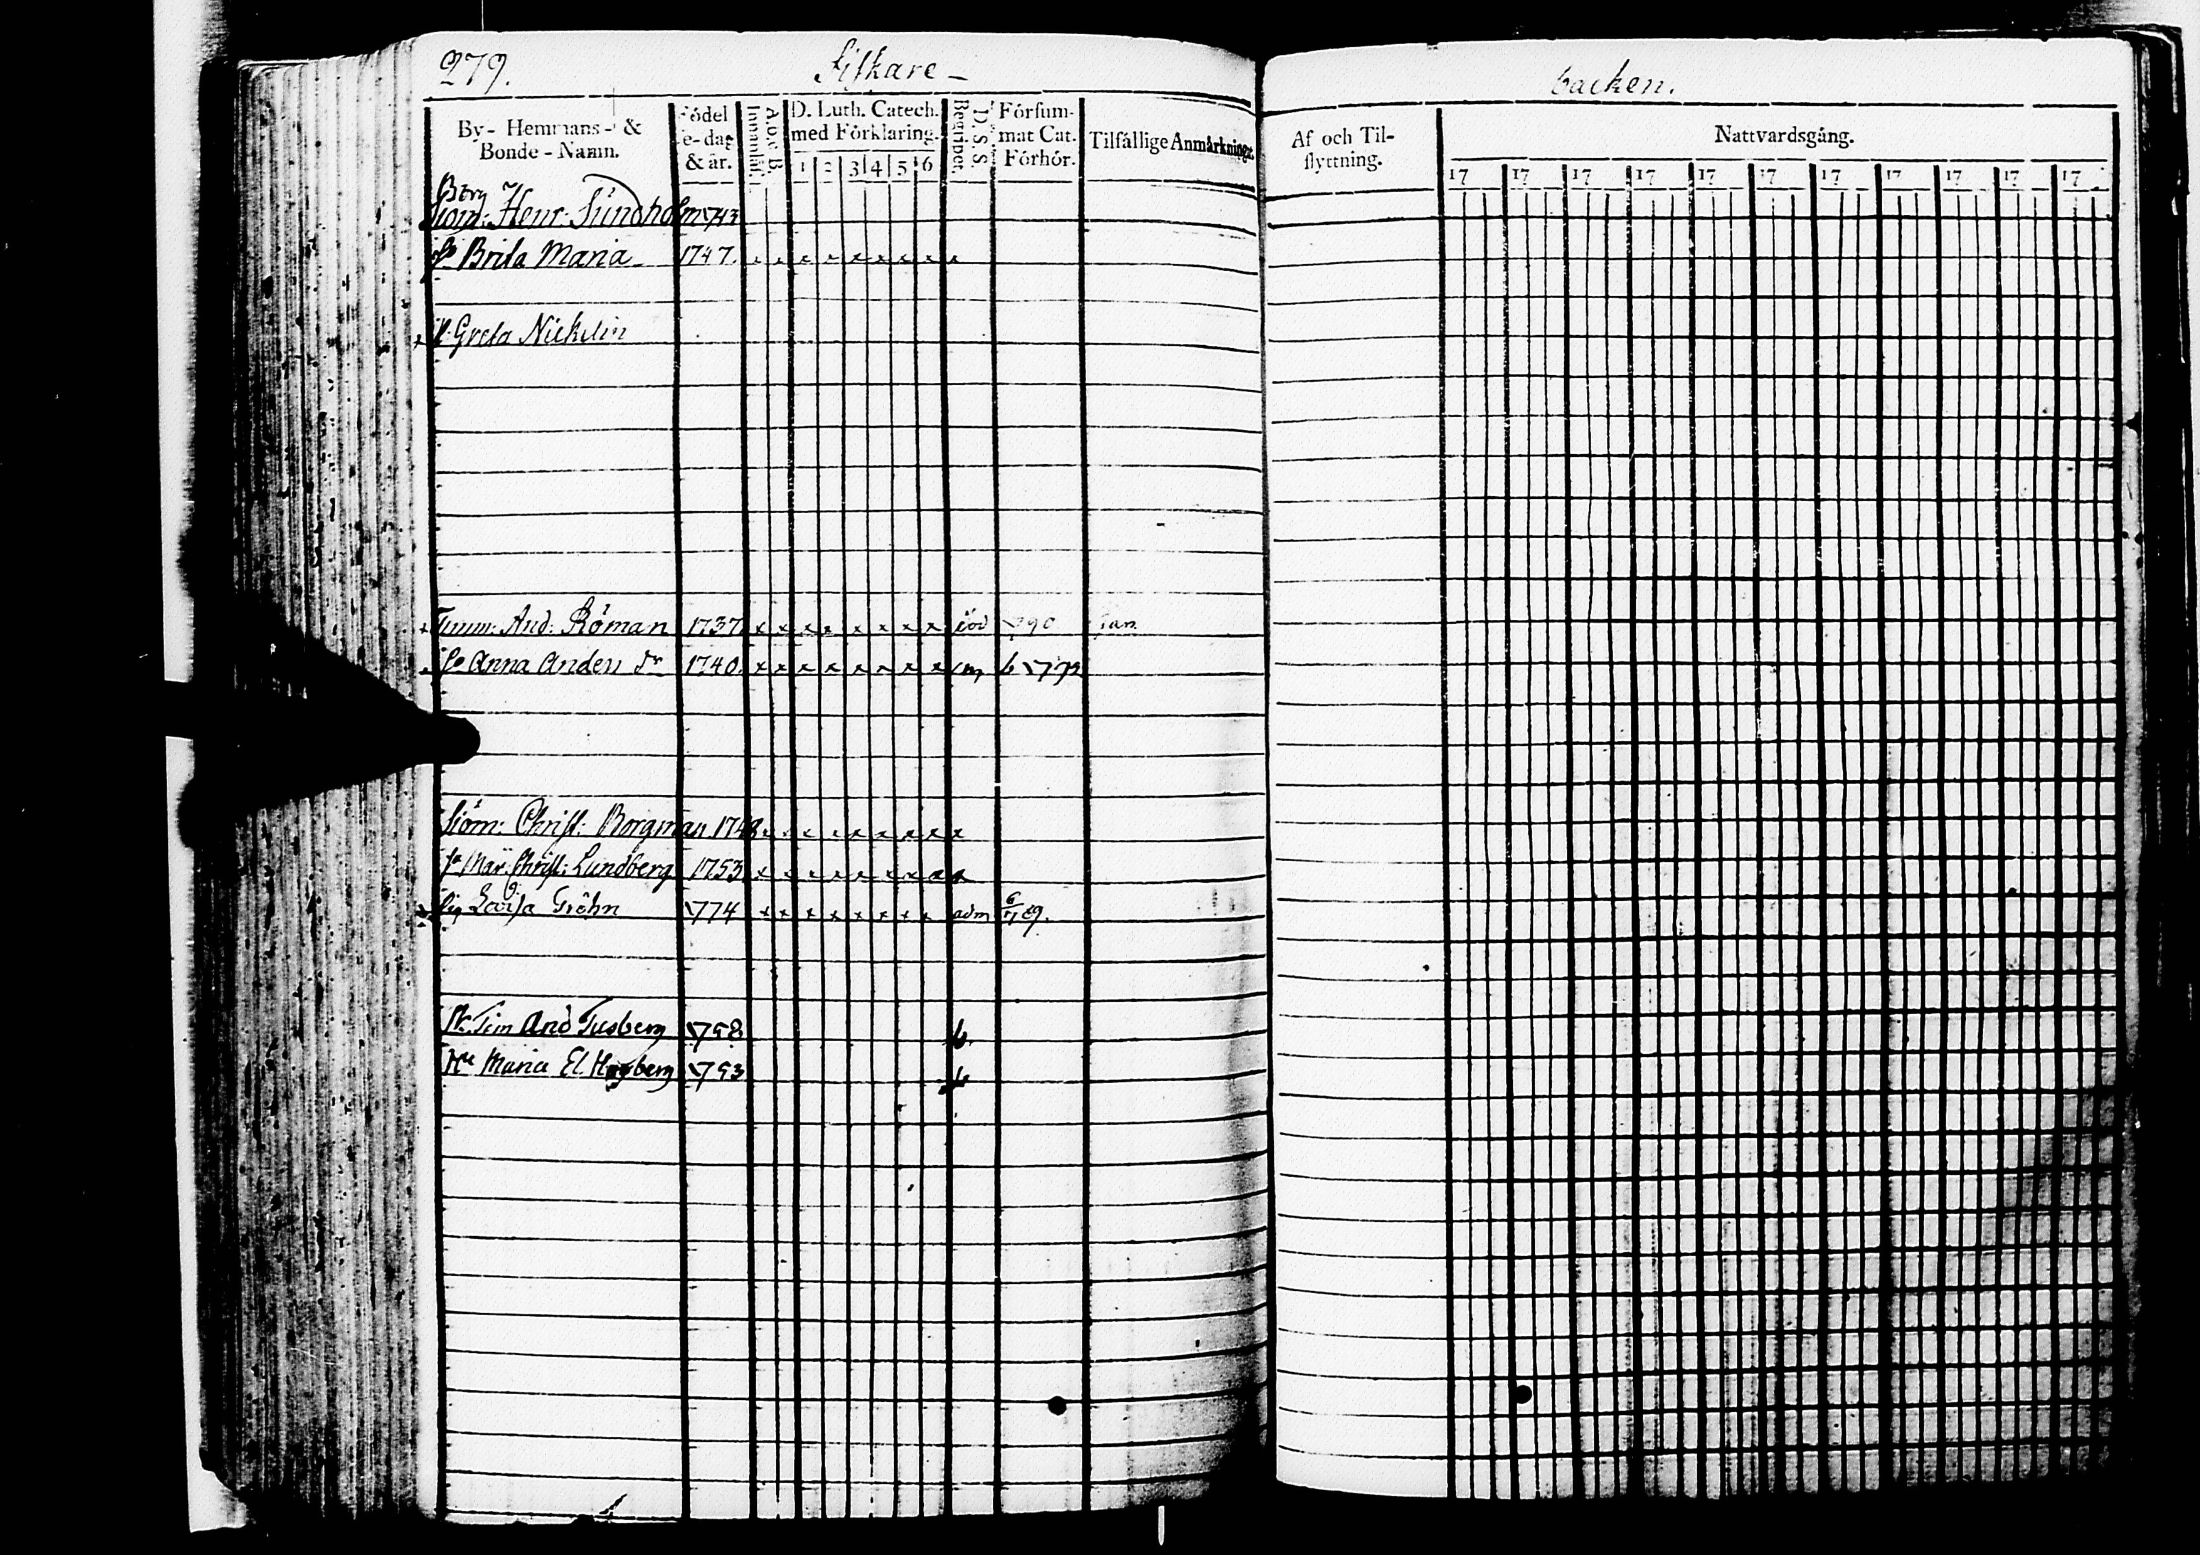 279. Fiskare - backen.
By- Hemmans- & Bonde-Namn. Födelse-dag & år. Innanläsn. A. b. c. B. D. Luth. Catech. med Förklaring. 1 2 3 4 5 6 Begripet. D. S. S. Försummat Cat. Förhör. Tilfällige Anmärkningar. Af och Tilflyttning. Nattvardsgång.
17 17 17 17 17 17 17 17 17 17 17
Borg
Siöm: Henr. Sundholm 1743
Brita Maria 1747. x x x x x x x x x
Greta
Timm: And: Röman 1737 x x x x x x x x död 1790 Jan.
Anna Anders Dr 1740. x x x x x x x x b 1792
Siöm: Christ: Borgman 1748 x x x x x x x x x
Mar: Christ: Lundberg 1753 x x x x x x x x x
Pig Lovisa Gröhn 1774 x x x x x x x x adm 6/7 89.
And 1758 b.
Maria El. 1753 b